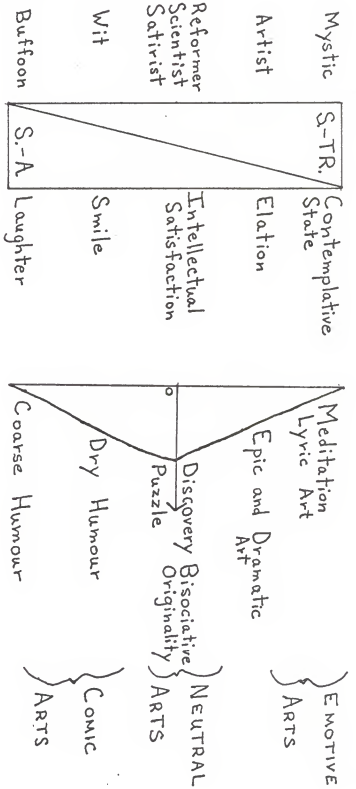 Mystic
Artist
Reformer
Scientist
Satirist
Wit
Buffoon
S.-TR.
S.-A.
Contemplative
State
Elation
Intellectual
Satisfaction
Smile
Laughter
O
Meditation
Lyric Art
Epic and Dramatic
Art
Discovery
Puzzle
Bisociative
Originality
Dry Humour
Coarse Humour
EMOTIVE
ARTS
NEUTRAL
ARTS
COMIC
ARTS